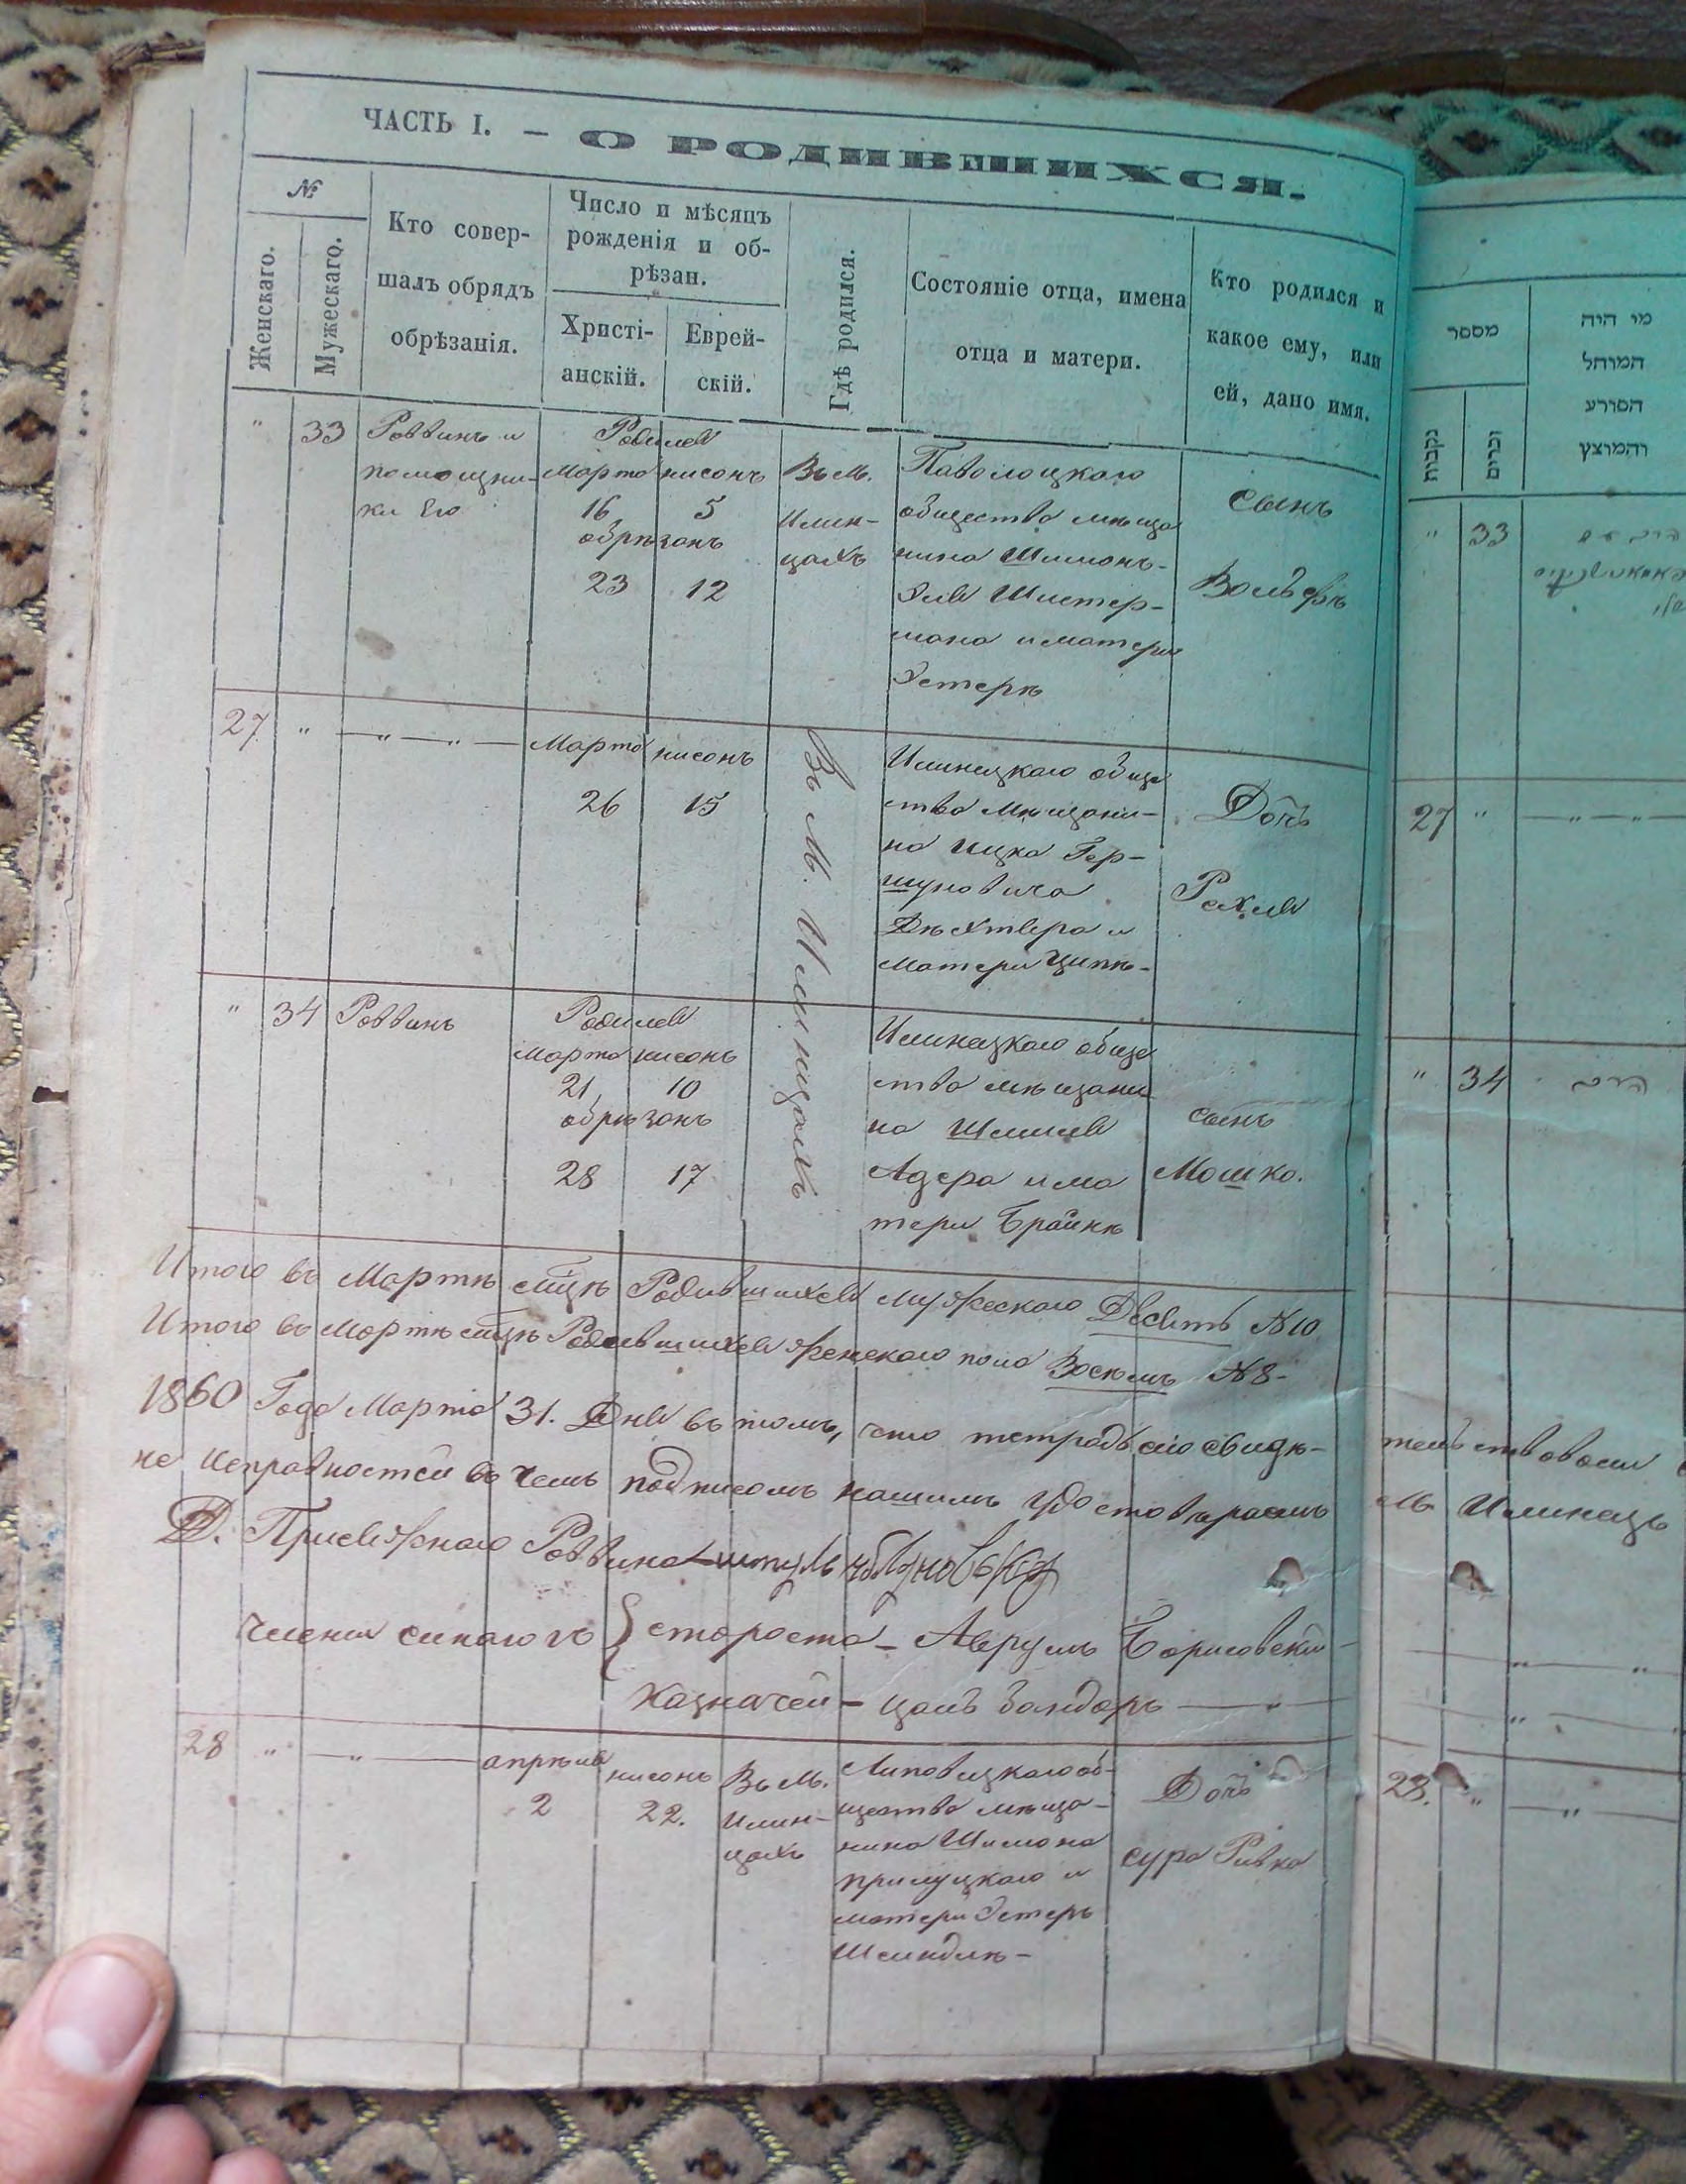 ЧАСТЬ I. – О РОДИВШИХСЯ.
№
Женскаго.
Мужескаго.
Кто совер-
шалъ обрядъ
обрѣзанія.
Число и мѣсяцъ
рожденія и об-
рѣзан.
Христі-
анскій.
Еврей-
скій.
Гдѣ родился.
Состояніе отца, имена
отца и матери.
Кто родился и
какое ему, или
ей, дано имя.
" 33
Раввинъ и
помощни-
ки Его
Родился
Марта нисонъ
16 5
обрѣзанъ
23 12
Въ М.
Илин-
цахъ
Паволоцкаго
общества мѣща
нина Шимонъ-
Эля
мана и матери
Эстеръ
Сынъ
Вольфъ
27 " — " — " —
Марта нисонъ
26 15
Въ М. Илинцахъ
Илинецкаго обще
ства мѣщани-
на Ицка Гер-
шуновича
Дѣхтяра и
матери Ципѣ-
Дочь
Рахля
" 34 Раввинъ
Родился
Марта нисонъ
21 10
обрѣзанъ
28 17
Илинецкаго обще
ства мѣщани
на Шмиля
Адера и ма
тери Брайнѣ
сынъ
Мошко.
Итого въ Мартѣ мцѣ Родившихся мужескаго Десять № 10
Итого въ Мартѣ мцѣ Родившихся женскаго пола Восемь № 8-
1860 Года Марта 31. Дня въ томъ, что тетрадь сію свидѣ-
не исправностей въ чемъ подписомъ нашимъ удостовѣраемъ
Д. Присяжнаго Раввина
Члены синагогъ { староста – Аврумъ Борисовскій –
Казначей – — " —
28 " — " —
апрѣля нисонъ
2 22.
Въ М.
Илин-
цахъ
Липовецкаго об-
щества мѣща-
нина Шимона
Прилуцкаго и
матери Эстеръ
Шейндлѣ-
Дочь
сура Ривка
מספר
נקבות
זכרים
מי היה
המוהל
הפורע
והמוצץ
" 33
27 " — " — " —
" 34 הרב
тельствовали
М. Илинецъ
28. " — " —